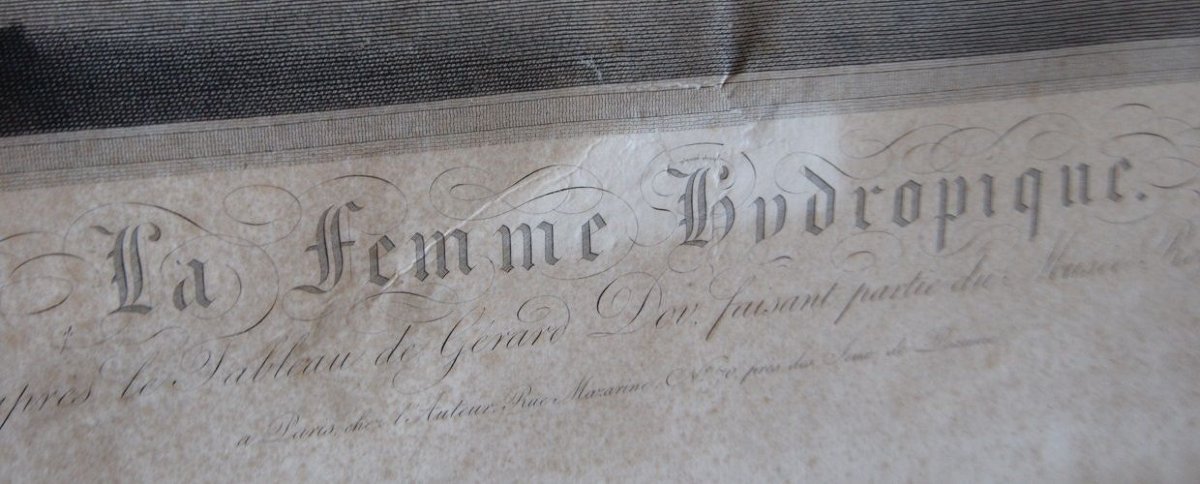 La Femme Hydropique.
après le Tableau de Gérard Dov, faisant partie du Musée
a Paris, chez l'Auteur, Rue Mazarine, N° 70, près des